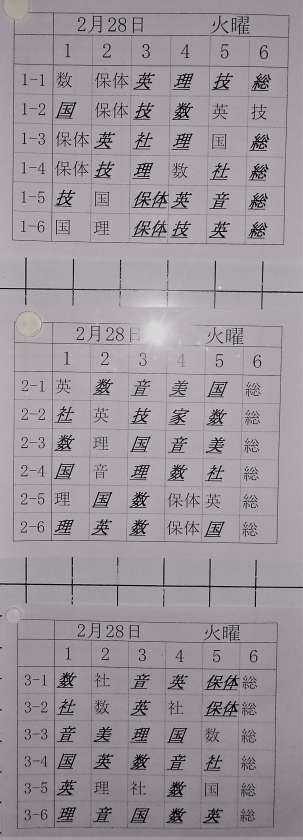 2月28日 火曜
1 2 3 4 5 6
1-1 数 保体 英 理 技 総
1-2 国 保体 技 数 英 技
1-3 保体 英 社 理 国 総
1-4 保体 技 理 数 社 総
1-5 技 国 保体 英 音 総
1-6 国 理 保体 技 英 総
2月28日 火曜
1 2 3 4 5 6
2-1 英 数 音 美 国 総
2-2 社 英 技 家 数 総
2-3 数 理 国 音 美 総
2-4 国 音 理 数 社 総
2-5 理 国 数 保体 英 総
2-6 理 英 数 保体 国 総
2月28日 火曜
1 2 3 4 5 6
3-1 数 社 音 英 保体 総
3-2 社 数 英 社 保体 総
3-3 音 美 理 国 数 総
3-4 国 英 数 音 社 総
3-5 英 理 社 数 国 総
3-6 理 音 国 数 英 総